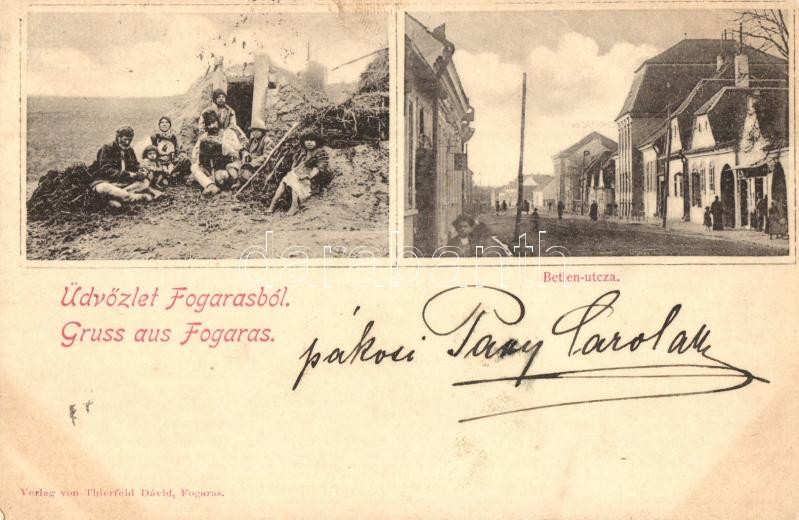 darabanth
Betlen-utcza.
Üdvözlet Fogarasból.
Gruss aus Fogaras.
pákosi Paxy Carolan
Verlag von Thierfeld Dávid, Fogaras.